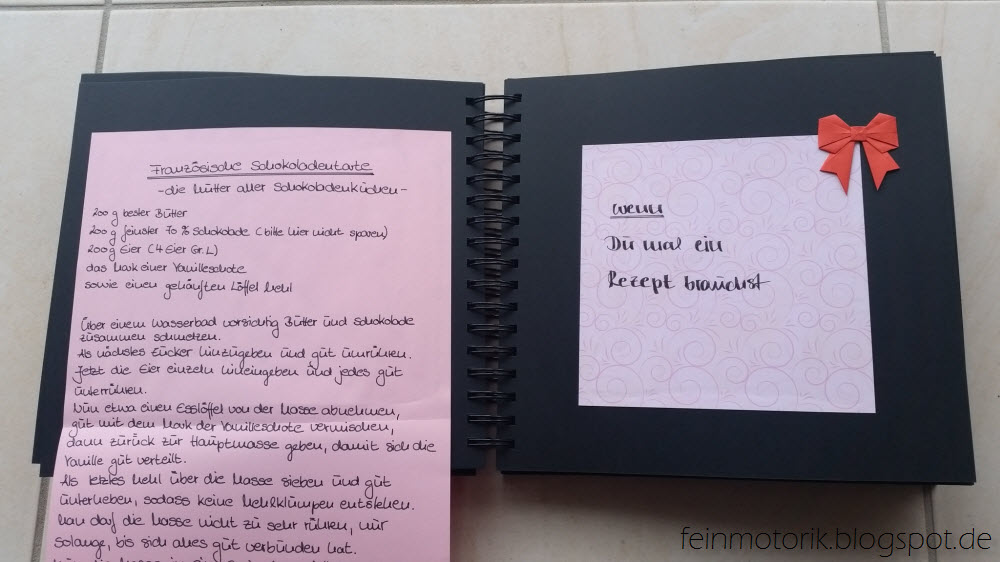 Französische Schokoladentarte
- die Mutter aller Schokoladenkuchen -
200 g bester Butter
200 g feinster 70 % Schokolade (bitte hier nicht sparen)
200 g Eier (4 Eier Gr. L)
das Mark einer Vanilleschote
sowie einen gehäuften Löffel Mehl
Über einem Wasserbad vorsichtig Butter und Schokolade
zusammen schmelzen.
Als nächstes Zucker hinzugeben und gut umrühren.
Jetzt die Eier einzeln hineingeben und jedes gut
unterrühren.
Nun etwa einen Esslöffel von der Masse abnehmen,
gut mit dem Mark der Vanilleschote vermischen,
dann zurück zur Hauptmasse geben, damit sich die
Vanille gut verteilt.
Als letztes Mehl über die Masse sieben und gut
unterheben, sodass keine Mehlklumpen entstehen.
Man darf die Masse nicht zu sehr rühren, nur
solange, bis sich alles gut verbunden hat.
wenn
Du mal ein
Rezept brauchst
feinmotorik.blogspot.de